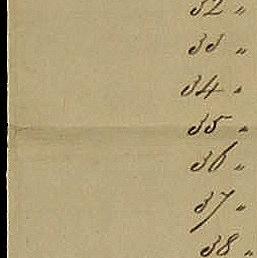 32 "
33 "
34 "
35 "
36 "
37 "
38 "